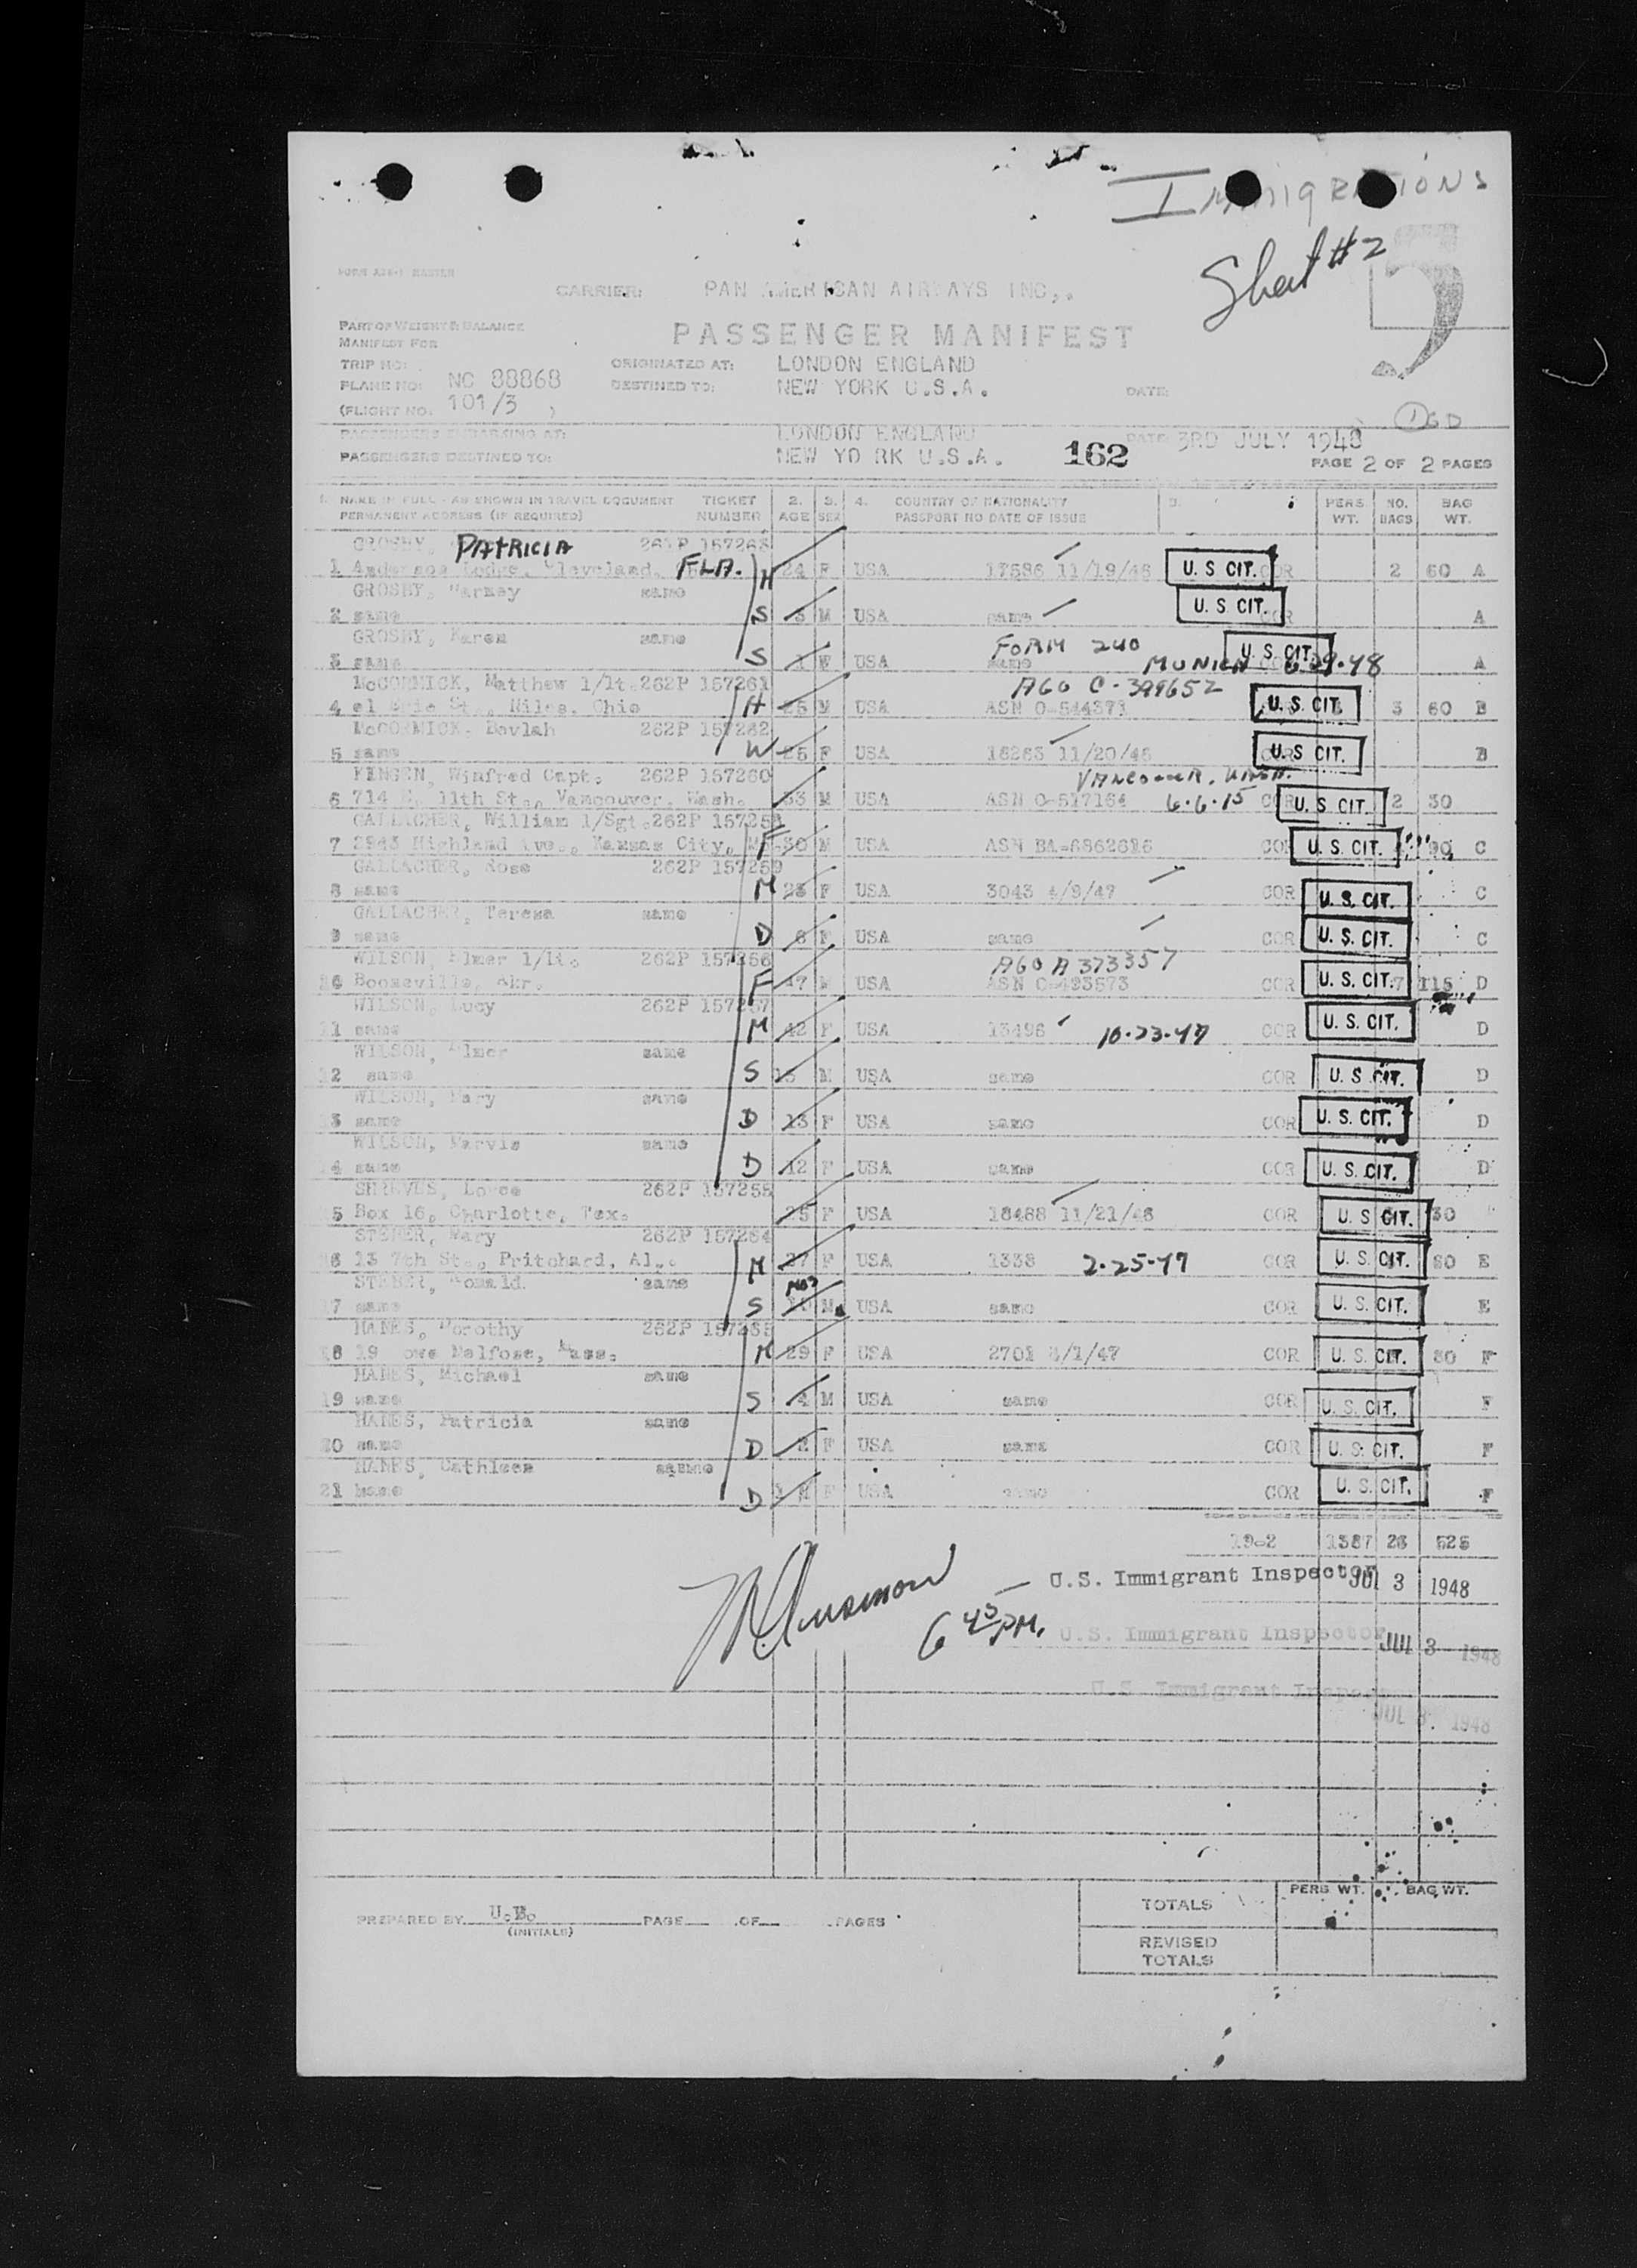 IMMIGRATIONS
Sheet #2
FORM
CARRIER: PAN AMERICAN AIRWAYS INC,.
PART OF WEIGHT & BALANCE
MANIFEST FOR
PASSENGER MANIFEST
TRIP NO: ORIGINATED AT: LONDON ENGLAND
PLANE NO: NC 88868 DESTINED TO: NEW YORK U.S.A. DATE:
(FLIGHT NO. 101/3 )
PASSENGERS EMBARKING AT: LONDON ENGLAND DATE 3RD JULY 1948
PASSENGERS DESTINED TO: NEW YO RK U.S.A. 162 PAGE 2 OF 2 PAGES
1. NAME IN FULL - AS SHOWN IN TRAVEL DOCUMENT TICKET 2. 3. 4. COUNTRY OF NATIONALITY PERS. NO. BAG
PERMANENT ADDRESS (IF REQUIRED) NUMBER AGE SEX PASSPORT NO DATE OF ISSUE WT. BAGS WT.
GROSBY, PATRICIA 262P 157263
1 Anderson Lodge, Cleveland, FLA. M 24 F USA 17586 11/19/46 U. S CIT. 2 60 A
GROSBY, same
2 same S 3 M USA same U. S. CIT. COR A
GROSBY, Karen same FORM 240
3 same S 1 USA same U. S. CIT. MUNICH 48 A
McCORMICK, Matthew 1/lt. 262P 157261 AGO C-399652
4 St., Niles, Ohio H 25 M USA ASN O-544371 U. S. CIT. 3 60 B
McCORMICK, 262P 157262
5 same W 25 F USA 18283 11/20/46 U. S CIT. B
Winfred Capt. 262P 157260 VANCOUVER, WASH.
6 714 11th St., Vancouver, Wash. 33 M USA ASN O-517164 6.6.15 U. S. CIT. 2 30
GALLACHER, William 1/Sgt. 262P 157258
7 2943 Highland Ave., Kansas City, F 30 M USA ASN U. S. CIT. 90 C
GALLACHER, Rose 262P 157259
8 same M 23 F USA 3043 4/9/47 COR U. S. CIT. C
GALLACHER, Teresa same
9 same D 6 F USA same COR U. S. CIT. C
WILSON, Elmer 1/lt. 262P 157256 AGO A 373357
10 F 47 M USA ASN COR U. S. CIT. 7 115 D
WILSON, Lucy 262P 157257
11 same M 42 F USA 13496 10-23-47 COR U. S. CIT. D
WILSON, Elmer same
12 same S 15 M USA same COR U. S CIT. D
WILSON, Mary same
13 same D 13 F USA same COR U. S. CIT. D
WILSON, same
14 same D 12 F USA same COR U. S. CIT. D
262P 157255
15 Box 16, Charlotte, Tex. 25 F USA 18488 11/21/46 COR U. S CIT. 30
STEBER, Mary 262P 157264
16 13 7th St., Pritchard, Al. M 27 F USA 1338 2-25-47 COR U. S. CIT. 80 E
STEBER, Donald. same MOS
17 same S M. USA same COR U. S. CIT. E
HANES, Dorothy 262P 157265
18 19 Melfose, Mass. M 29 F USA 2701 COR U. S. CIT. 80 F
HANES, Michael same
19 same S 4 M USA same COR U. S. CIT. F
HANES, Patricia same
20 same D 2 F USA same COR U. S. CIT. F
HANES, Cathleen
21 same D F USA same COR U. S. CIT. F
19-2 1387 525
U.S. Immigrant Inspector JUL 3 1948
6 45 PM. U.S. Immigrant Inspector JUL 3 1948
U.S. Immigrant Inspector
JUL 3. 1948
PERS WT. BAG WT.
TOTALS
PREPARED BY U.B. PAGE OF PAGES
(INITIALS)
REVISED
TOTALS